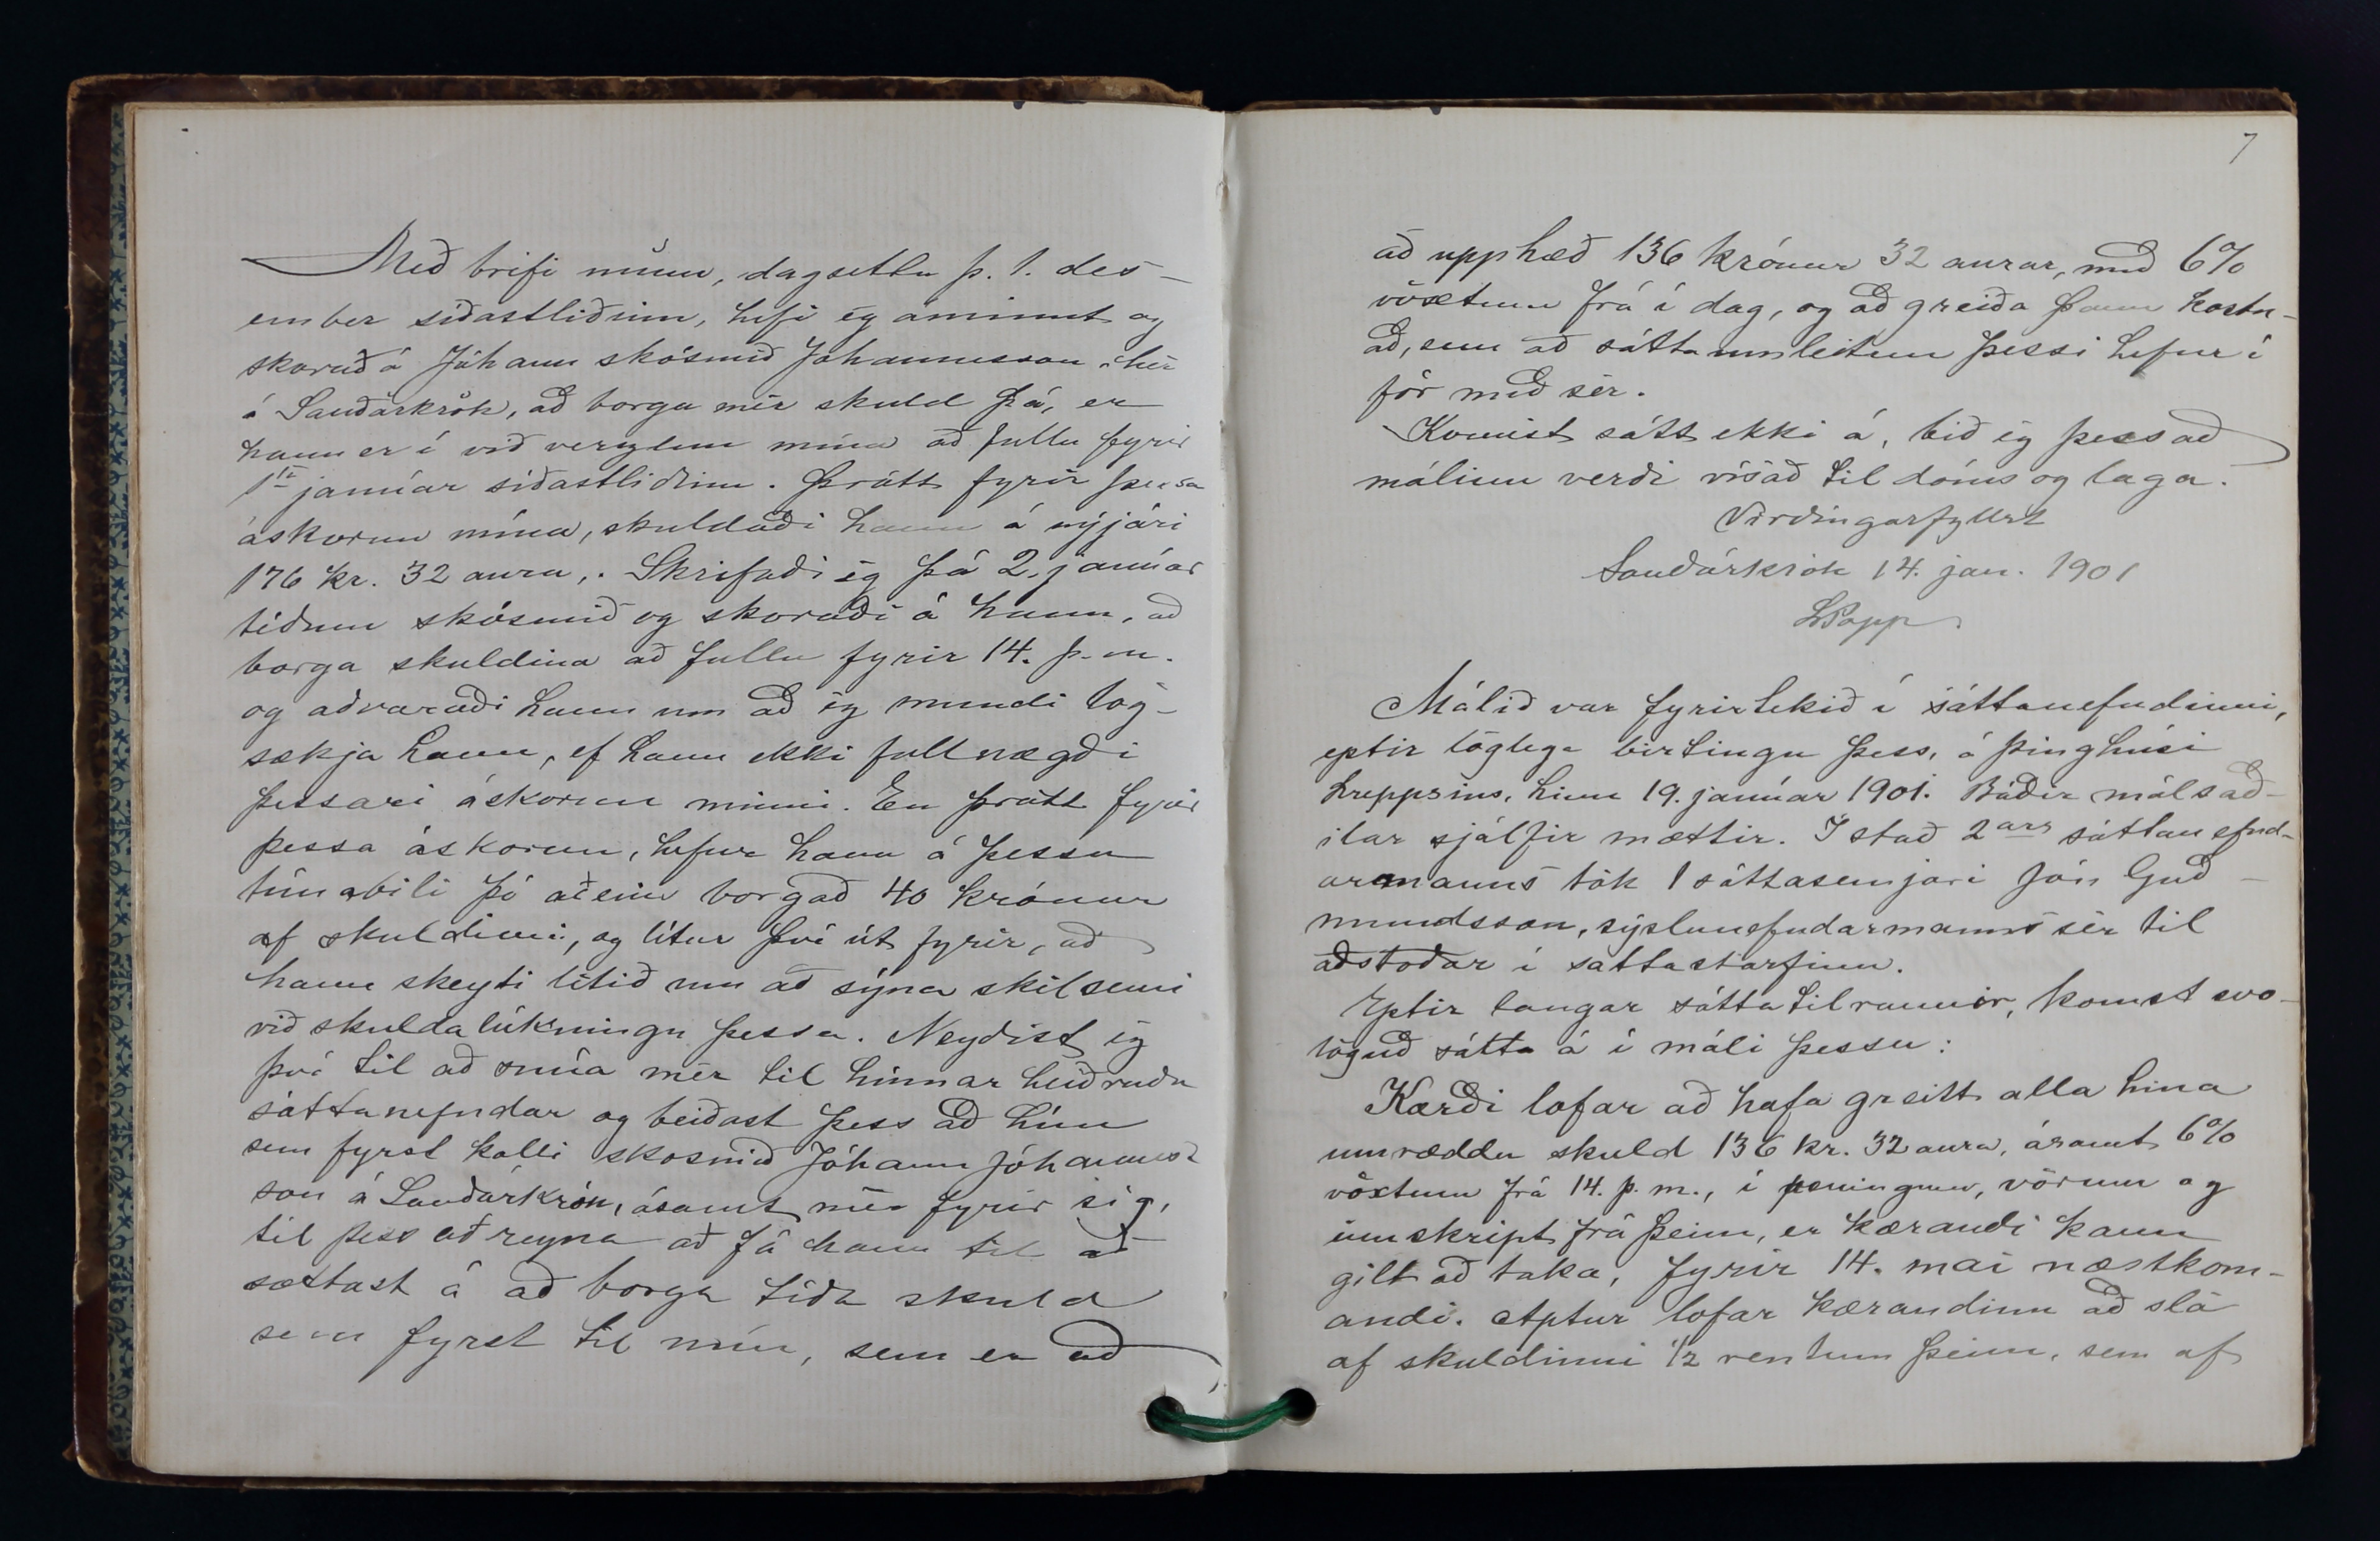 Með brifi mínu, dagsettu þ. 1. des-
ember síðastliðinn, hefi ég áminnt og
skorað á Jóhann skósmið Jóhannesson hér
á Sauðárkrók, að borga mér skuld þá, er
hann er í við verzlun mína að fullu fyrir
1sta janúar síðastliðinn. Þrátt fyrir þessa
áskorun mína, skuldaði hann á nýjári
176 kr. 32 aura,. Skrifaði ég þá 2. janúar
téðum skósmið og skoraði á hann, að
borga skuldina að fullu fyrir 14. þ.m.
og aðvaraði hann um að ég mundi lög-
sækja hann, ef hann ekki fullnægði
þessari áskorun minni. En þrátt fyrir
þessa áskorun, hefur hann á þessu
tímabili þó aðeins borgað 40 krónur
af skuldinni, og lítur því út fyrir, að
hann skeyti lítið um að sýna skilsemi
við skuldalúkningu þessa. Neyðist ég
því til að snúa mér til hinnar heiðruðu
sáttanefndar og beiðast þess að hún
sem fyrst kalli skósmið Jóhann Jóhannes-
son á Sauðárkrók, ásamt mér fyrir sig,
til þess að reyna að fá hann til að
sættast á að borga téða skuld
sem fyrst til mín, sem er að
7
að upphæð 136 krónur 32 aurar, með 6%
vöxtum frá í dag, og að greiða þann kostn-
að, sem að sáttaumleitun þessi hefur í
för með sér.
Komist sátt ekki á, bið ég þess að
málinu verði vísað til dóms og laga.
Virðingarfyllst
Sauðárkrók 14. jan. 1901
LPopp
Málið var fyrirtekið í sáttanefndinni,
eptir löglega birtingu þess, á þinghúsi
hreppsins, hinn 19. janúar 1901. Báðir málsað-
ilar sjálfir mættir. Í stað 2ars sáttanefnd-
armanns tók 1 sáttasemjari Jón Guð-
mundsson, sýslunefndarmann sér til
aðstoðar í sáttastarfinu.
Eptir langar sáttatilraunir, komst svo-
löguð sátta á í máli þessu:
Kærði lofar að hafa greitt alla hina
umræddu skuld 136 kr. 32 aura, ásamt 6%
vöxtum frá 14. þ.m., í peningum, vörum og
innskript frá þeim, er kærandi kann
gilt að taka, fyrir 14. maí næstkom-
andi. Aptur lofar kærandinn að slá
af skuldinni 1/2 rentum þeim, sem af